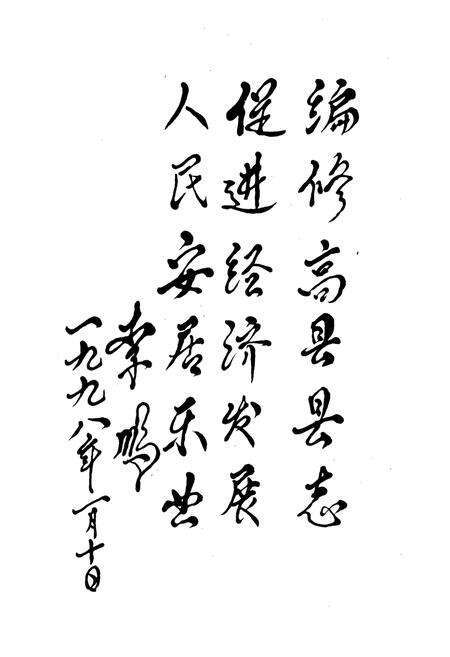 编修高县县志
促进经济发展
人民安居乐业
李鹏
一九九八年一月十日